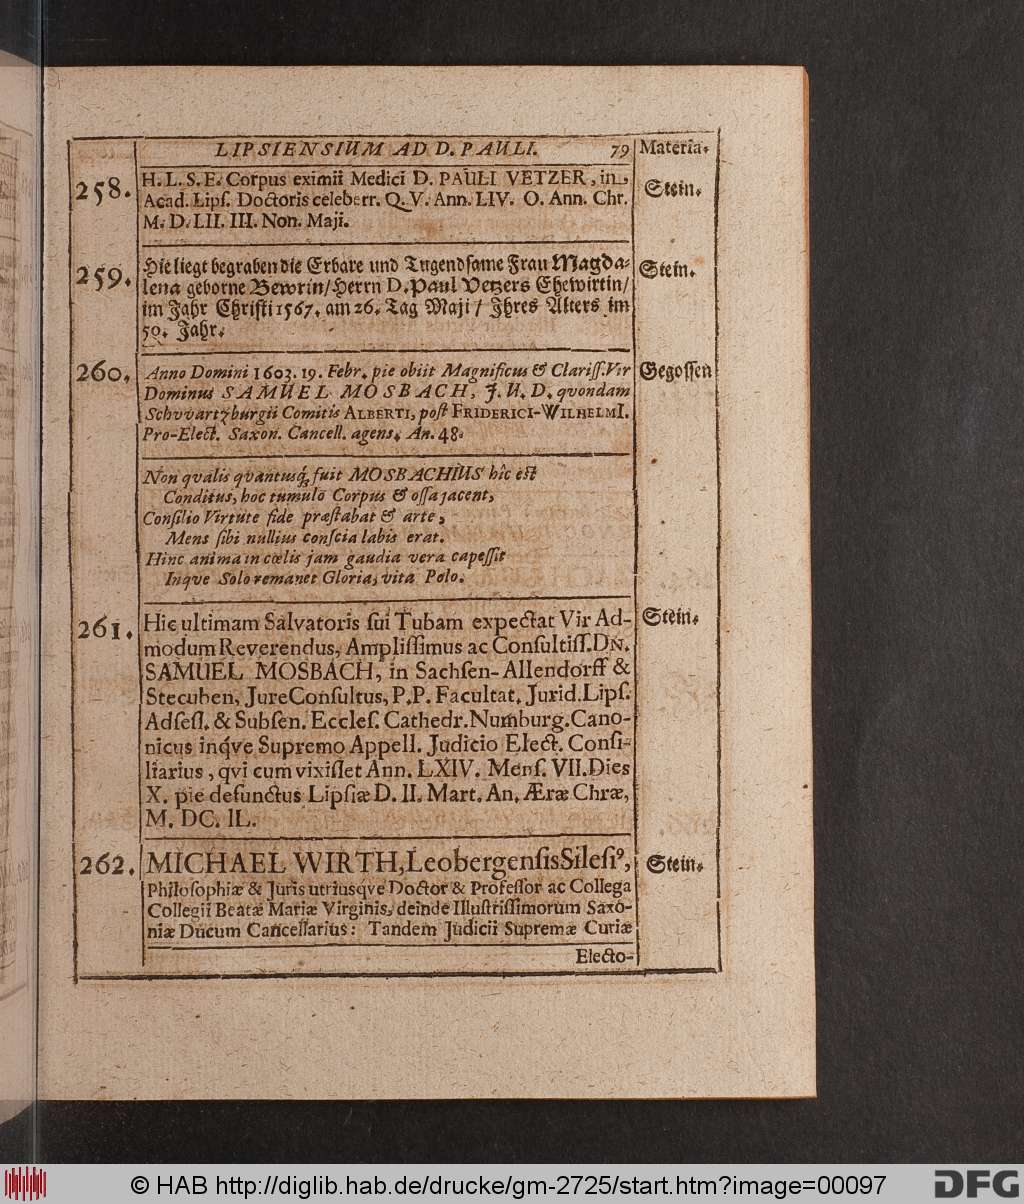 LIPSIENSIUM AD D. PAULI. 79 Materia.
258. H. L. S. E. Corpus eximii Medici D. PAULI VETZER, in Stein.
Acad. Lipſ. Doctoris celeberr. Q. V. Ann. LIV. O. Ann. Chr.
M. D. LII. III. Non. Maji.
259. Hie liegt begraben die Erbare und Tugendſame Frau Magda- Stein.
lena geborne Bewrin/ Herrn D. Paul Vetzers Ehewirtin/
im Jahr Chriſti 1567. am 26. Tag Maji / Ihres Alters im
50. Jahr.
260. Anno Domini 1603. 19. Febr. pie obiit Magnificus & Clariſſ. Vir Gegoſſen
Dominus SAMUEL MOSBACH, J. U. D. qvondam
Schvvartzburgii Comitis ALBERTI, poſt FRIDERICI-WILHELMI.
Pro-Elect. Saxon. Cancell. agens, An. 48.
Non qvalis qvantusq; fuit MOSBACHIUS hîc eſt
Conditus, hoc tumulô Corpus & oſſa jacent,
Conſilio Virtute fide præſtabat & arte,
Mens ſibi nullius conſcia labis erat.
Hinc anima in cœlis jam gaudia vera capeſſit
Inqve Solo remanet Gloria, vita Polo.
261. Hic ultimam Salvatoris ſui Tubam expectat Vir Ad- Stein.
modum Reverendus, Ampliſſimus ac Conſultiſſ. DN.
SAMUEL MOSBACH, in Sachſen-Allendorff &
Stecuhen, JureConſultus, P.P. Facultat. Jurid. Lipſ.
Adſeſſ. & Subſen. Eccleſ. Cathedr. Numburg. Cano-
nicus inqve Supremo Appell. Judicio Elect. Conſi-
liarius, qvi cum vixiſſet Ann. LXIV. Menſ. VII. Dies
X. pie defunctus Lipſiæ D. II. Mart. An. Æræ Chræ,
M. DC. IL.
262. MICHAEL WIRTH, Leobergenſis Sileſiꝰ, Stein.
Philoſophiæ & Juris utriusqve Doctor & Profeſſor ac Collega
Collegii Beatæ Mariæ Virginis, deinde Illuſtriſſimorum Saxo-
niæ Ducum Cancellarius: Tandem Judicii Supremæ Curiæ
Electo-
© HAB http://diglib.hab.de/drucke/gm-2725/start.htm?image=00097
DFG